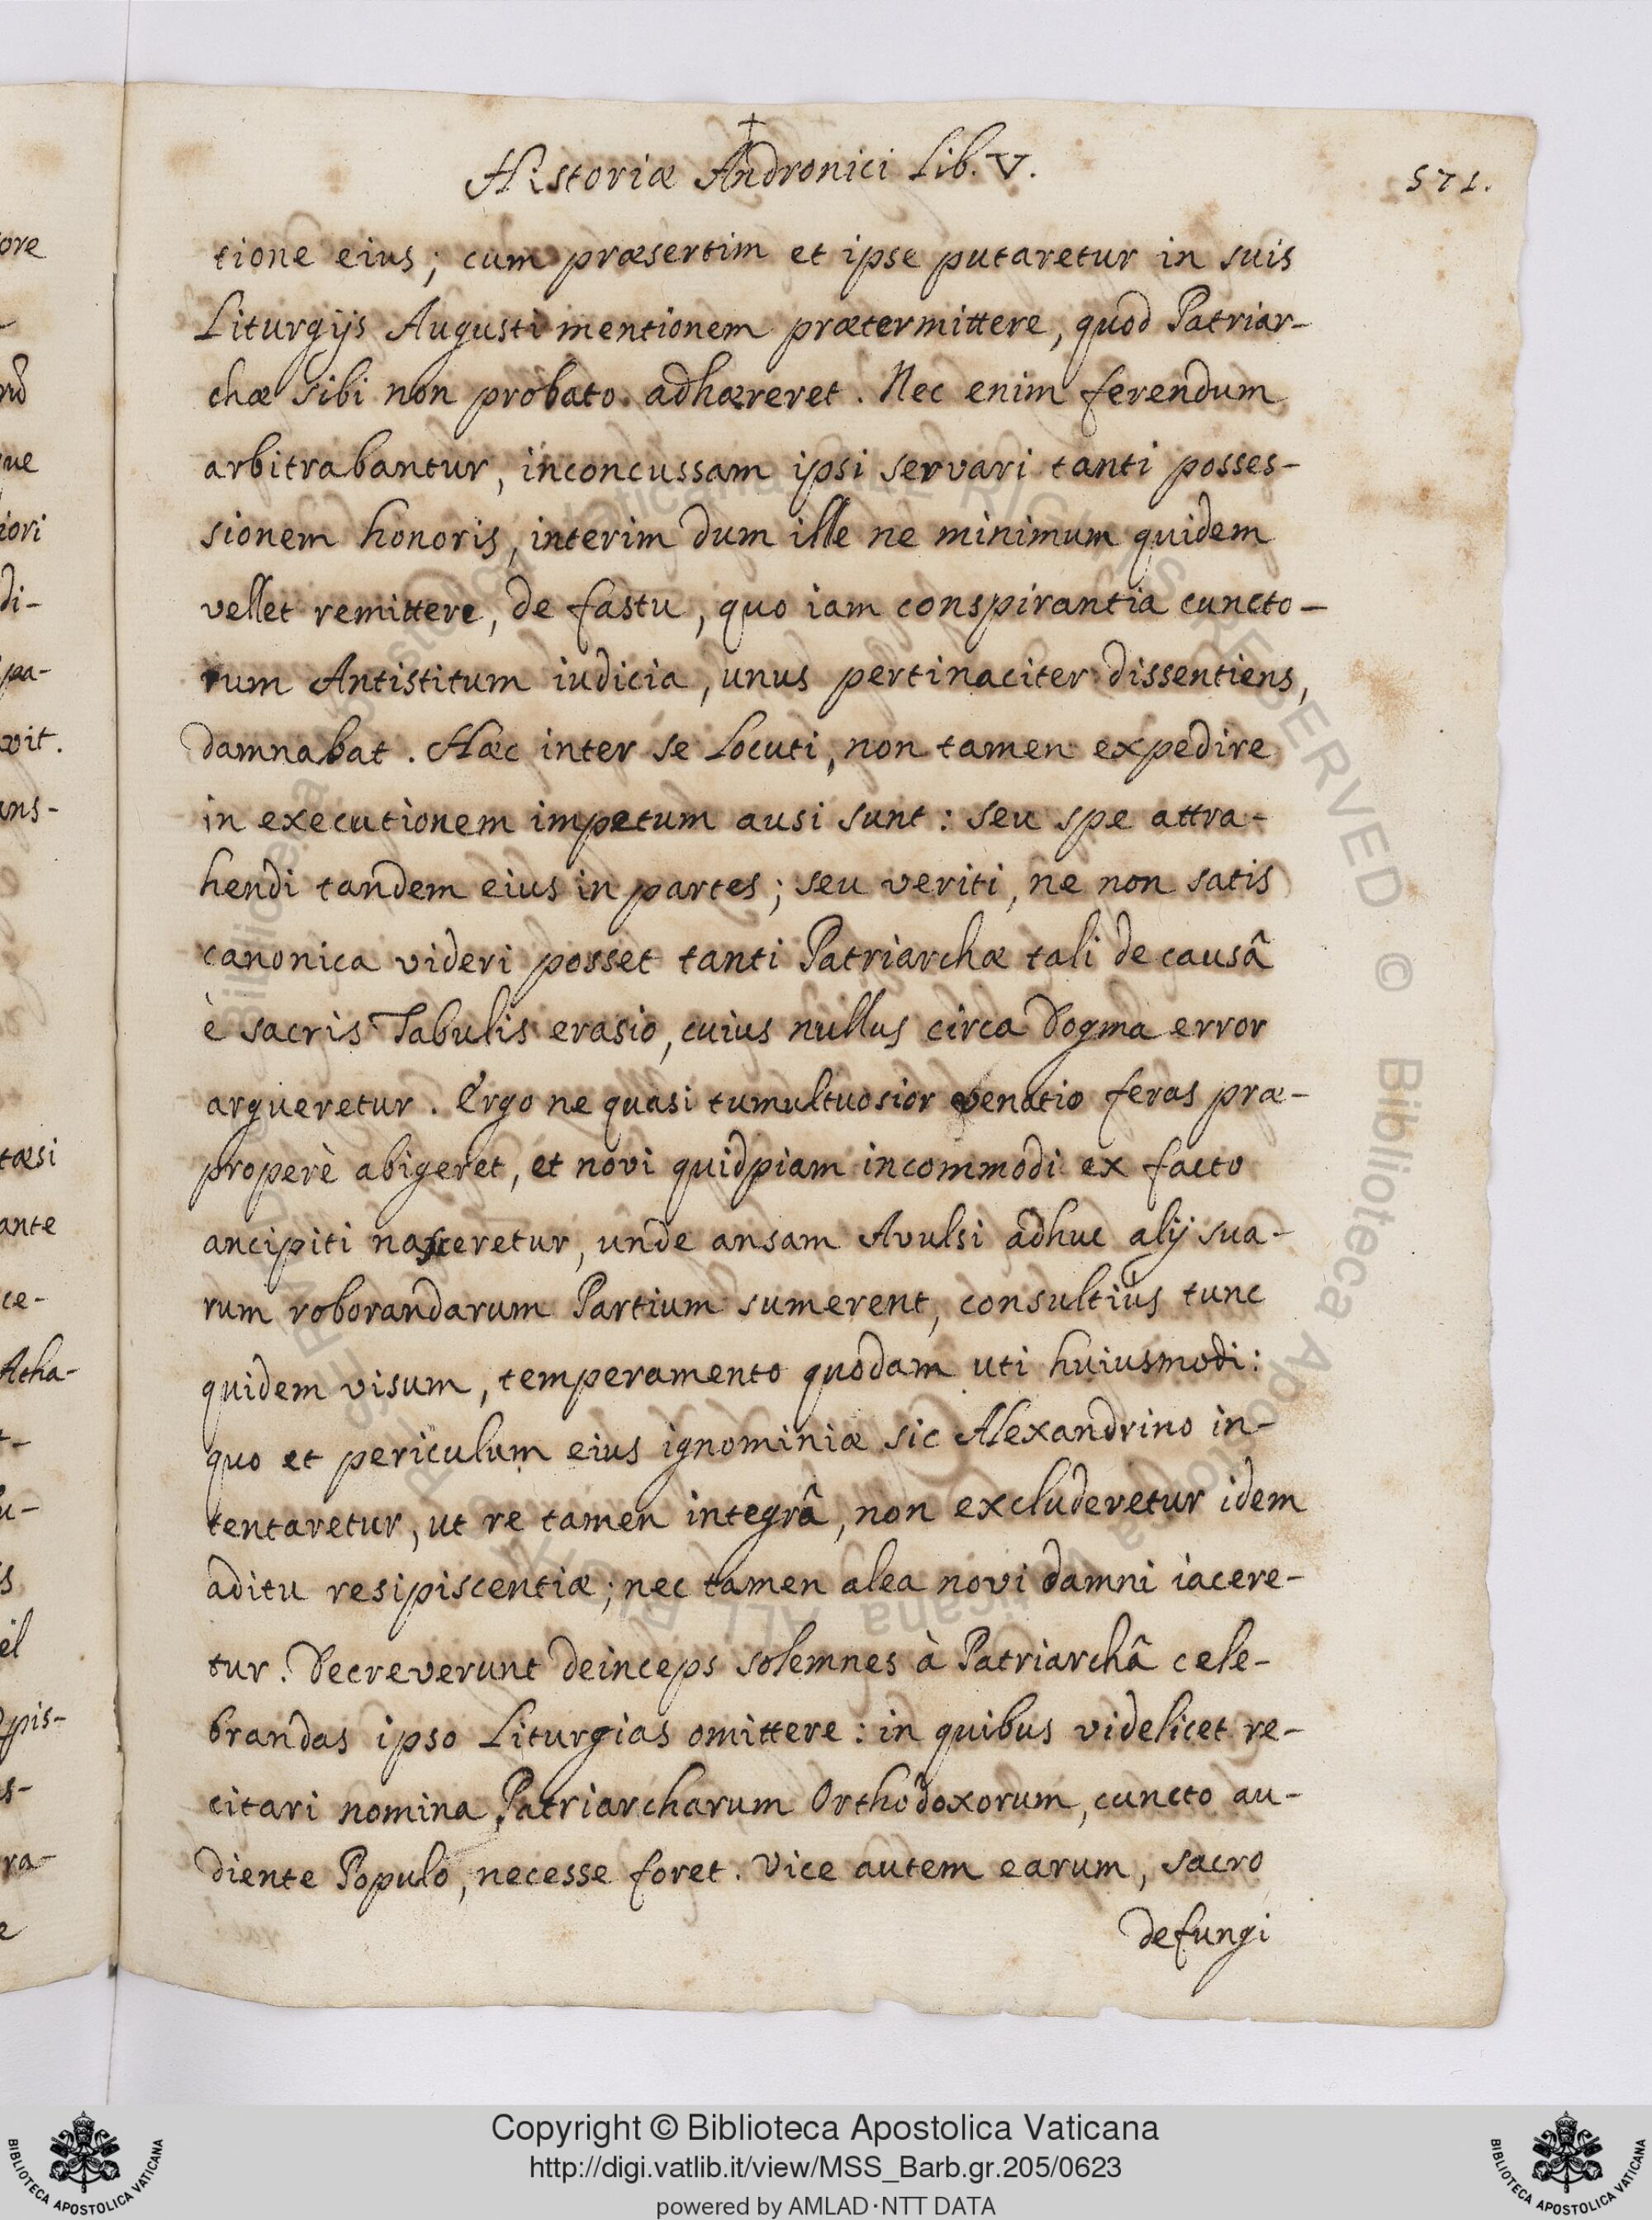 Historiæ Andronici Lib. V.
571.
tione eius; cum præsertim et ipse putaretur in suis
Liturgijs Augusti mentionem prætermittere, quod Patriar-
chæ sibi non probato adhæreret. Nec enim ferendum
arbitrabantur, inconcussam ipsi servari tanti posses-
sionem honoris, interim dum ille ne minimum quidem
vellet remittere, de fastu, quo iam conspirantia cuncto-
rum Antistitum iudicia, unus pertinaciter dissentiens,
damnabat. Hæc inter se Locuti, non tamen expedire
in executionem impetum ausi sunt: seu spe attra-
hendi tandem eius in partes; seu veriti, ne non satis
canonica videri posset tanti Patriarchæ tali de causâ
è sacris Tabulis erasio, cuius nullus circa Dogma error
argueretur. Ergo ne quasi tumultuosior venatio feras præ-
properè abigeret, et novi quidpiam incommodi ex facto
ancipiti nasceretur, unde ansam Avulsi adhuc alij sua-
rum roborandarum Partium sumerent, consultius tunc
quidem visum, temperamento quodam uti huiusmodi:
quo et periculum eius ignominiæ sic Alexandrino in-
tentaretur, ut re tamen integrâ, non excluderetur idem
aditu resipiscentiæ; nec tamen alea novi damni iacere-
tur. Decreverunt deinceps solemnes à Patriarchâ cele-
brandas ipso Liturgias omittere: in quibus videlicet re-
citari nomina Patriarcharum Orthodoxorum, cuncto au-
diente Populo, necesse foret. Vice autem earum, sacro
defungi
ore
que
iori
di-
pa-
vit.
ans-
tæsi
ante
ce-
Acha-
t-
u-
s
el
pis-
s-
ra-
e
Biblioteca Apostolica Vaticana ALL RIGHTS RESERVED © Biblioteca Apostolica Vaticana ALL RIGHTS RESERVED ©
Copyright © Biblioteca Apostolica Vaticana
http://digi.vatlib.it/view/MSS_Barb.gr.205/0623
powered by AMLAD·NTT DATA
BIBLIOTECA APOSTOLICA VATICANA
BIBLIOTECA APOSTOLICA VATICANA